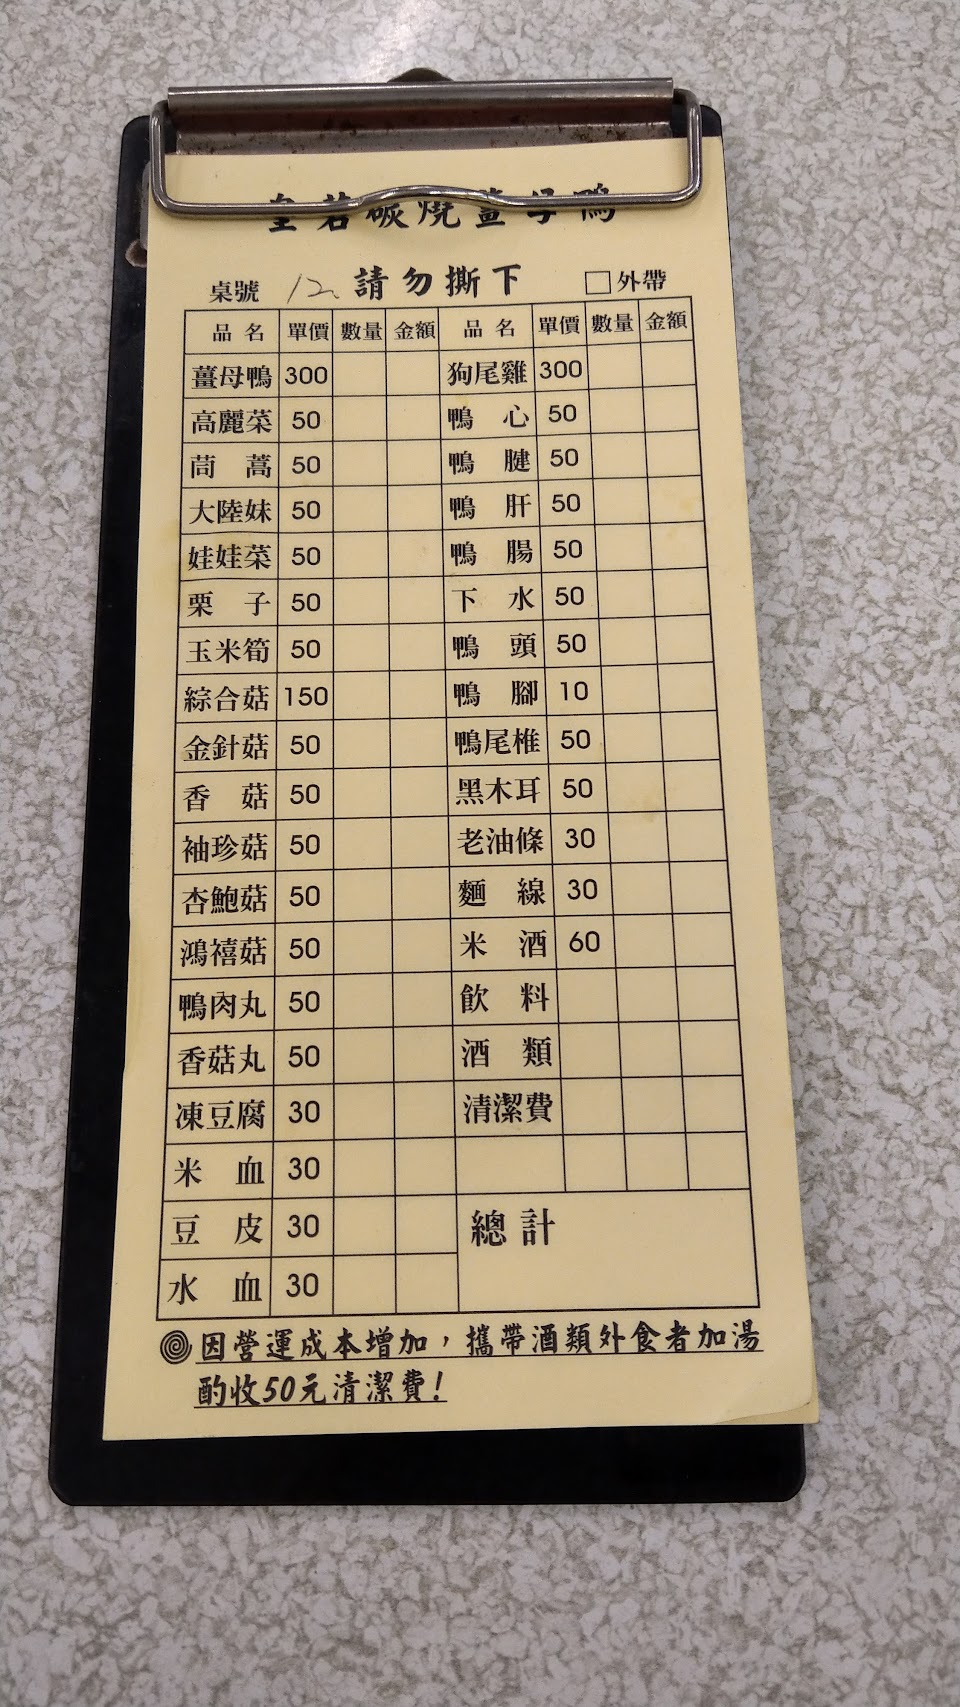 皇若碳燒薑母鴨
桌號 12 請勿撕下 □外帶
品名 單價 數量 金額 品名 單價 數量 金額
薑母鴨 300 狗尾雞 300
高麗菜 50 鴨心 50
茼蒿 50 鴨腱 50
大陸妹 50 鴨肝 50
娃娃菜 50 鴨腸 50
栗子 50 下水 50
玉米筍 50 鴨頭 50
綜合菇 150 鴨腳 10
金針菇 50 鴨尾椎 50
香菇 50 黑木耳 50
袖珍菇 50 老油條 30
杏鮑菇 50 麵線 30
鴻禧菇 50 米酒 60
鴨肉丸 50 飲料
香菇丸 50 酒類
凍豆腐 30 清潔費
米血 30
豆皮 30 總計
水血 30
因營運成本增加，攜帶酒類外食者加湯
酌收50元清潔費！